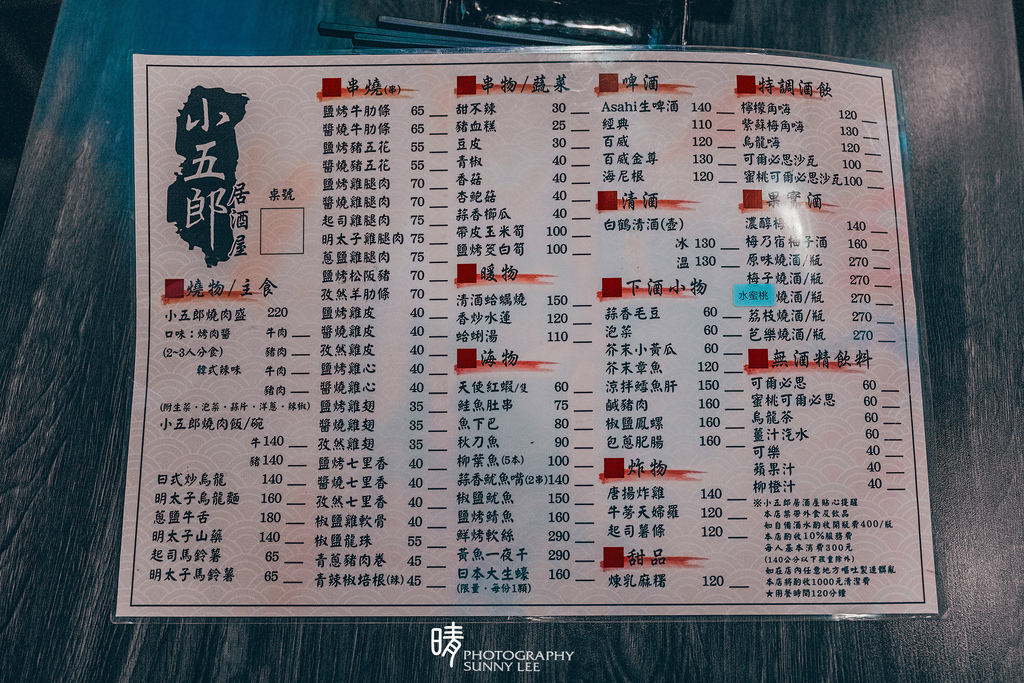 小五郎
居酒屋
桌號
燒物/主食
小五郎燒肉盛 220
口味：烤肉醬 牛肉
(2~3人分食) 豬肉
韓式辣味 牛肉
豬肉
(附生菜・泡菜・蒜片・洋蔥・辣椒)
小五郎燒肉飯/碗
牛140
豬140
日式炒烏龍 140
明太子烏龍麵 160
蔥鹽牛舌 180
明太子山藥 140
起司馬鈴薯 65
明太子馬鈴薯 65
串燒(串)
鹽烤牛肋條 65
醬燒牛肋條 65
鹽烤豬五花 65
醬燒豬五花 65
鹽烤雞腿肉 70
醬燒雞腿肉 70
起司雞腿肉 75
明太子雞腿肉 75
蔥鹽雞腿肉 75
鹽烤松阪豬 70
孜然羊肋條 70
鹽烤雞皮 40
醬燒雞皮 40
孜然雞皮 40
鹽烤雞心 40
醬燒雞心 40
鹽烤雞翅 35
醬燒雞翅 35
孜然雞翅 35
鹽烤七里香 40
醬燒七里香 40
孜然七里香 40
椒鹽雞軟骨 40
椒鹽龍珠 55
青蔥豬肉卷 45
青辣椒培根(辣) 45
串物/蔬菜
甜不辣 30
豬血糕 25
豆皮 30
青椒 40
香菇 40
杏鮑菇 40
蒜香櫛瓜 40
帶皮玉米筍 100
鹽烤筊白筍 100
暖物
清酒蛤蠣燒 150
香炒水蓮 120
蛤蜊湯 110
海物
天使紅蝦/隻 60
鮭魚肚串 75
魚下巴 80
秋刀魚 90
柳葉魚(5本) 100
蒜香魷魚嘴(2串)140
椒鹽魷魚 150
鹽烤鯖魚 160
鮮烤軟絲 290
黃魚一夜干 290
日本大生蠔 160
(限量・每份1顆)
啤酒
Asahi生啤酒 140
經典 110
百威 120
百威金尊 130
海尼根 120
清酒
白鶴清酒(壺)
冰 130
溫 130
下酒小物
蒜香毛豆 60
泡菜 60
芥末小黃瓜 60
芥末章魚 120
涼拌鱈魚肝 150
鹹豬肉 160
椒鹽鳳螺 160
包蔥肥腸 160
炸物
唐揚炸雞 140
牛蒡天婦羅 120
起司薯條 120
甜品
煉乳麻糬 120
特調酒飲
檸檬角嗨 120
紫蘇梅角嗨 130
烏龍嗨 120
可爾必思沙瓦 100
蜜桃可爾必思沙瓦100
果實酒
濃醇梅 140
梅乃宿柚子酒 160
原味燒酒/瓶 270
梅子燒酒/瓶 270
水蜜桃燒酒/瓶 270
荔枝燒酒/瓶 270
芭樂燒酒/瓶 270
無酒精飲料
可爾必思 60
蜜桃可爾必思 60
烏龍茶 60
薑汁汽水 60
可樂 40
蘋果汁 40
柳橙汁 40
※小五郎居酒屋貼心提醒
本店禁帶外食及飲品
如自備酒水酌收開瓶費400/瓶
本店酌收10%服務費
每人基本消費300元
(140公分以下孩童除外)
如在店內任意地方嘔吐製造髒亂
本店將酌收1000元清潔費
★用餐時間120分鐘
晴 PHOTOGRAPHY
SUNNY LEE